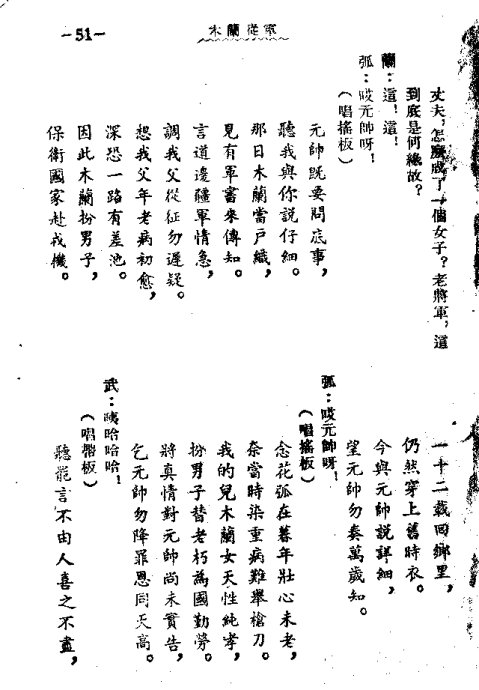 木蘭從軍
-51-
丈夫，怎麼成了一個女子？老將軍，這
到底是何緣故？
蘭：這！這！
弧：哎元帥呀！
（唱搖板）
元帥既要問底事，
聽我與你說仔細。
那日木蘭當戶織，
見有軍書來傳知。
言道邊疆軍情急，
調我父從征勿遲疑。
想我父年老病初愈，
深恐一路有差池。
因此木蘭扮男子，
保衛國家赴戎機。
一十二載回鄉里，
仍然穿上舊時衣。
今與元帥說詳細，
望元帥勿奏萬歲知。
弧：哎元帥呀！
（唱搖板）
念花弧在暮年壯心未老，
奈當時染重病難舉槍刀。
我的兒木蘭女天性純孝，
扮男子替老朽為國勤勞。
將真情對元帥尚未實告，
乞元帥勿降罪恩同天高。
武：咦哈哈哈！
（唱搖板）
聽罷言不由人喜之不盡，